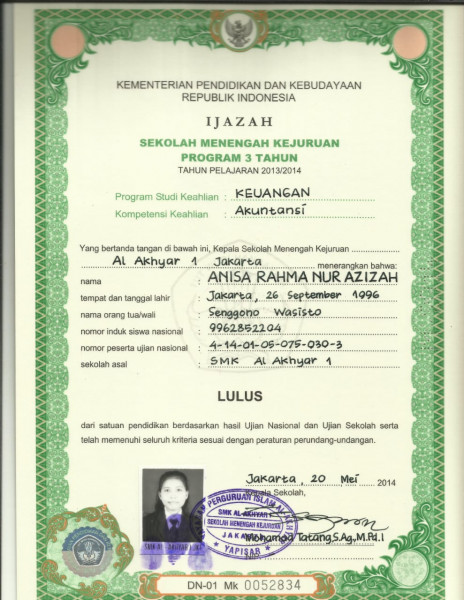 KEMENTERIAN PENDIDIKAN DAN KEBUDAYAAN
REPUBLIK INDONESIA
IJAZAH
SEKOLAH MENENGAH KEJURUAN
PROGRAM 3 TAHUN
TAHUN PELAJARAN 2013/2014
Program Studi Keahlian : KEUANGAN
Kompetensi Keahlian : Akuntansi
Yang bertanda tangan di bawah ini, Kepala Sekolah Menengah Kejuruan
Al Akhyar 1 Jakarta menerangkan bahwa:
nama : ANISA RAHMA NUR AZIZAH
tempat dan tanggal lahir : Jakarta, 26 September 1996
nama orang tua/wali : Senggono Wasisto
nomor induk siswa nasional : 9962852204
nomor peserta ujian nasional : 4-14-01-05-075-030-3
sekolah asal : SMK Al Akhyar 1
LULUS
dari satuan pendidikan berdasarkan hasil Ujian Nasional dan Ujian Sekolah serta
telah memenuhi seluruh kriteria sesuai dengan peraturan perundang-undangan.
Jakarta, 20 Mei 2014
Kepala Sekolah,
PERGURUAN ISLAM
SMK AL-AKHYAR 1
SEKOLAH MENENGAH KEJURUAN
JAKARTA
YAPISAB
Mohamad Tatang S.Ag, M.Pd.I
NIP.
DN-01 Mk 0052834